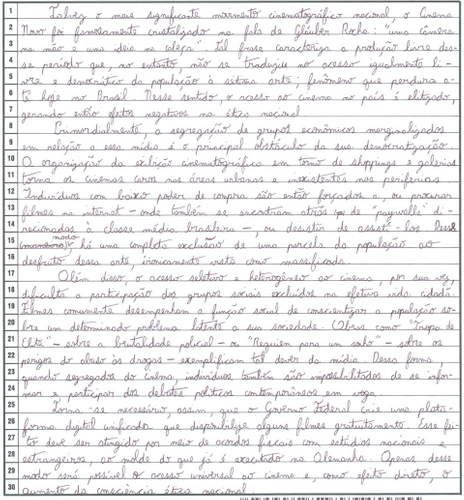 1 Talvez o mais significante movimento cinematográfico nacional, o Cinema
2 Novo foi famosamente cristalizado na fala de Glauber Rocha: "uma câmera
3 na mão e uma ideia na cabeça". Tal frase caracteriza a produção livre des-
4 se período que, no entanto não se traduziu no acesso igualmente li-
5 vre e democrático da população à sétima arte; fenômeno que perdura a-
6 té hoje no Brasil. Nesse sentido, o acesso ao cinema no país é elitizado,
7 gerando então efeitos negativos na ética nacional.
8 Primordialmente, a segregação de grupos econômicos marginalizados
9 em relação a essa mídia é o principal obstáculo da sua democratização.
10 O organização da exibição cinematográfica em torno de shoppings e galerias
11 torna os cinemas caros nas áreas urbanas e inexistentes nas periferias
12 Indivíduos com baixo poder de compra são então forçados a, ou procurar
13 filmes na internet – onde também se encontram atrás de "paywalls" di-
14 recionados à classe média brasileira –, ou desistir de assisti-los. Desse
15 modo (maneira), há uma completa exclusão de uma parcela da população ao
16 desfruto dessa arte, ironicamente vista como massificada.
17 Além disso, o acesso seletivo e heterogêneo ao cinema, por sua vez,
18 dificulta a participação dos grupos sociais excluídos na efetiva vida cidadã
19 Filmes comumente desempenham a função social de conscientizar a população so-
20 bre um determinado problema latente a sua sociedade. Obras como "Tropa de
21 Elite" – sobre a brutalidade policial – ou "Requiem para um sonho" – sobre os
22 perigos do abuso às drogas – exemplificam tal dever da mídia. Dessa forma
23 quando segregados do cinema, indivíduos também são impossibilitados de se infor-
24 mar e participar dos debates políticos contemporâneos em voga.
25 Torna-se necessário, assim, que o Governo Federal crie uma plata-
26 forma digital unificada que disponibilize alguns filmes gratuitamente. Esse fei-
27 to deve ser atingido por meio de acordos fiscais com estúdios nacionais e
28 estrangeiros, ao molde do que já é executado na Alemanha. Apenas desse
29 modo será possível o acesso universal ao cinema e, como efeito direto, o
30 aumento da consciência ética nacional.